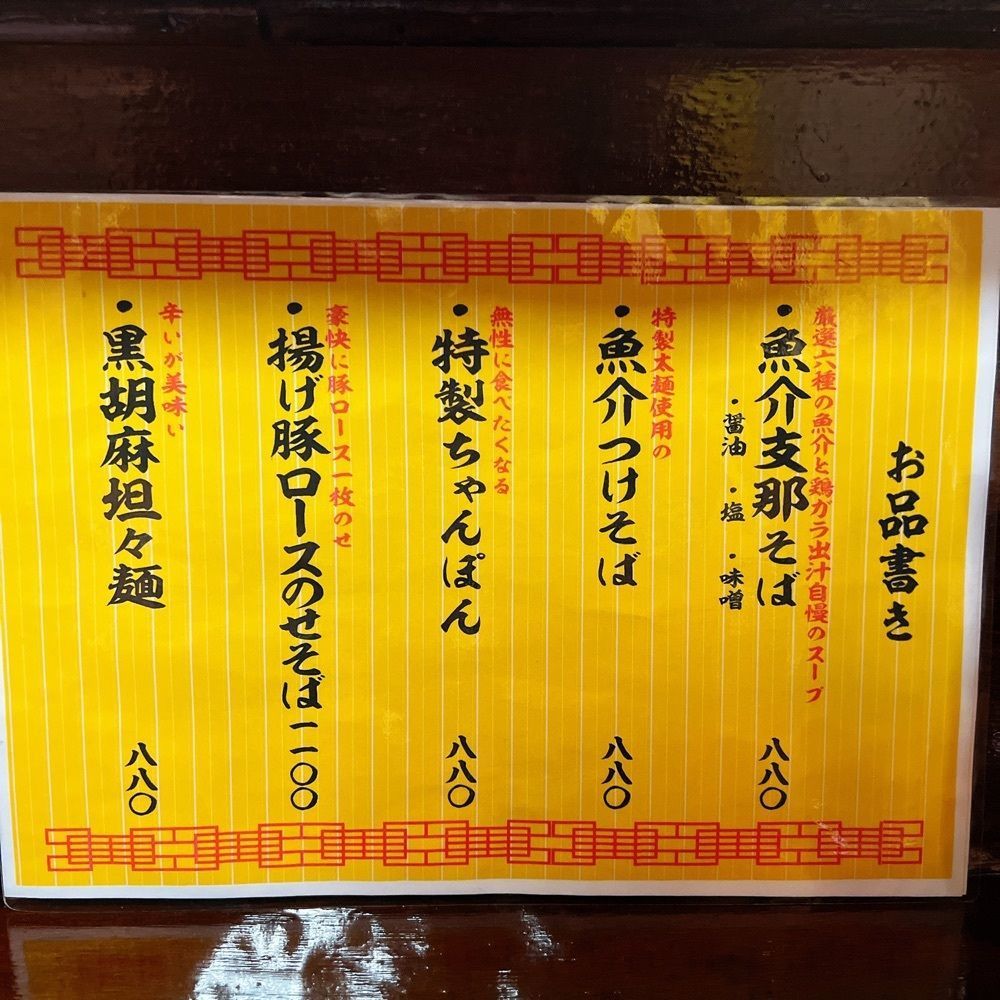 お品書き
厳選六種の魚介と鶏ガラ出汁自慢のスープ
・魚介支那そば 八八〇
・醤油 ・塩 ・味噌
特製太麺使用の
・魚介つけそば 八八〇
無性に食べたくなる
・特製ちゃんぽん 八八〇
豪快に豚ロース一枚のせ
・揚げ豚ロースのせそば 一一〇〇
辛いが美味い
・黒胡麻坦々麺 八八〇